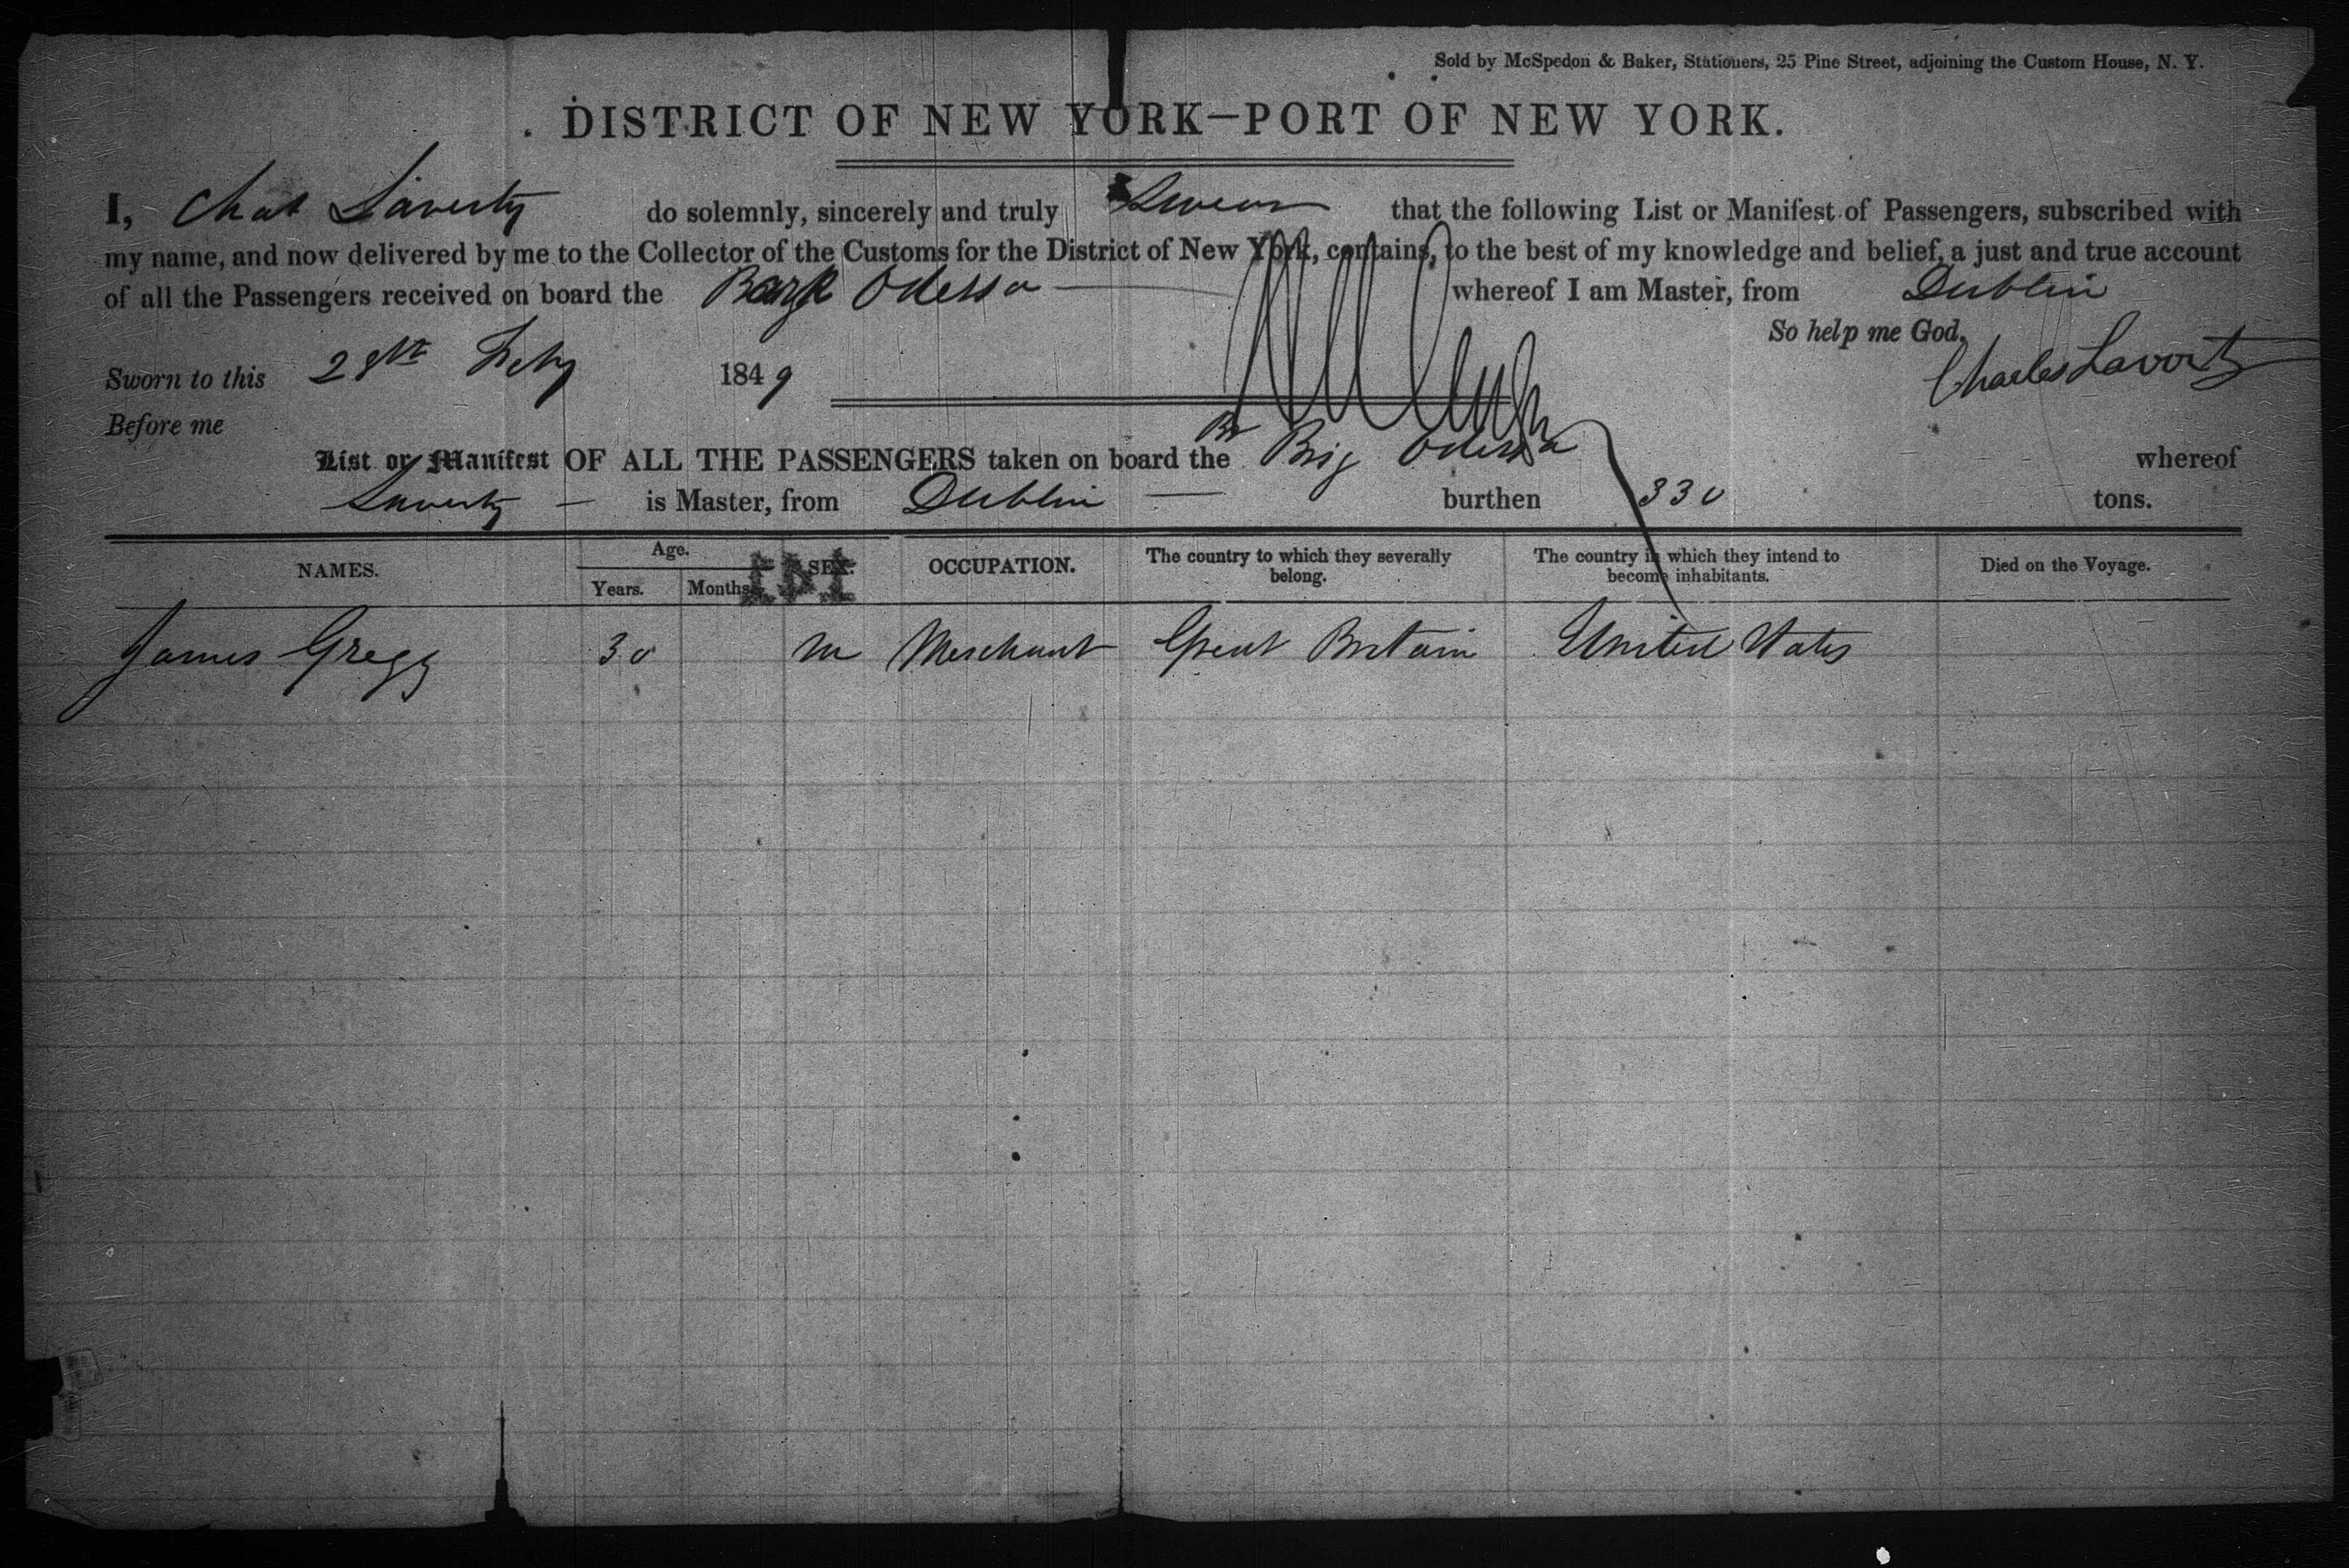 Sold by McSpedon & Baker, Stationers, 25 Pine Street, adjoining the Custom House, N. Y.
DISTRICT OF NEW YORK—PORT OF NEW YORK.
I, Chas Laverty do solemnly, sincerely and truly Swear that the following List or Manifest of Passengers, subscribed with
my name, and now delivered by me to the Collector of the Customs for the District of New York, contains, to the best of my knowledge and belief, a just and true account
of all the Passengers received on board the Bark Odessa whereof I am Master, from Dublin
So help me God,
Sworn to this 28th Feby 1849 Charles Laverty
Before me
List or Manifest OF ALL THE PASSENGERS taken on board the Br Brig Odessa whereof
Laverty — is Master, from Dublin — burthen 330 tons.
NAMES. Age. Years. Months. SEX. OCCUPATION. The country to which they severally belong. The country in which they intend to become inhabitants. Died on the Voyage.
141
James Gregg 30 m Merchant Great Britain United States